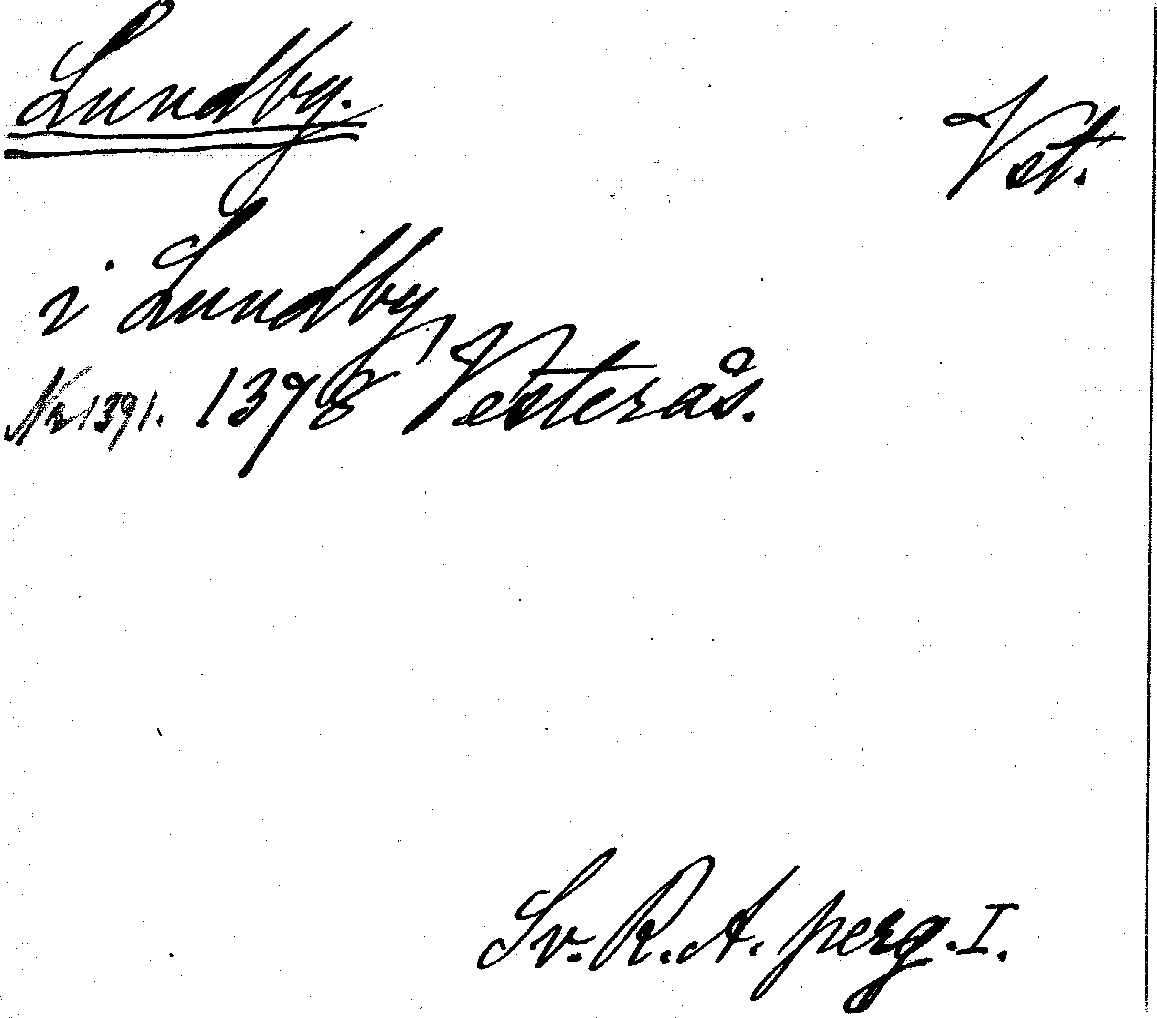 Lundby.
Vst.
i Lundby,
Nr 1391. 1378 Vesterås.
Sv. R. A. perg. I.